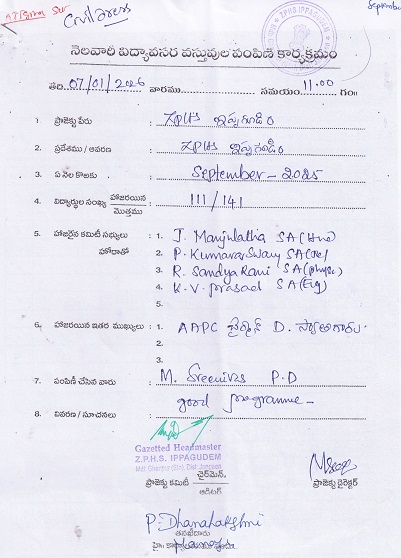 September
Z.P.H.S IPPAGUDEM
నెలవారీ విద్యావసర వస్తువుల పంపిణీ కార్యక్రమం
తేది. 07/01/2026 వారము సమయం 11.00 గం॥
1 ప్రాజెక్టు పేరు : ZPHS ఇప్పగూడెం
2. ప్రదేశము / ఆవరణ : ZPHS ఇప్పగూడెం
3. ఏ నెల కొఱకు : September - 2025
4. విద్యార్థుల సంఖ్య హాజరయిన / మొత్తము : 111 / 141
5. హాజరైన కమిటీ సభ్యులు : 1. J. Manjulatha SA
హహోదాతో 2. P. Kumara Swamy SA
3. R. Sandya Rani SA
4. K.V. Prasad SA (Eng)
5.
6. హాజరయిన ఇతర ముఖ్యులు : 1. AAPC చైర్మన్ D.
2.
3.
7. పంపిణీ చేసిన వారు : M. Sreenivas P.D
8. వివరణ / సూచనలు : good programme -
Gazetted Headmaster
Z.P.H.S. IPPAGUDEM
ప్రాజెక్టు కమిటీ చైర్మెన్,
ఆడిటర్
ప్రాజెక్టు డైరెక్టర్
P. Dhanalakshmi
తనిఖీదారు